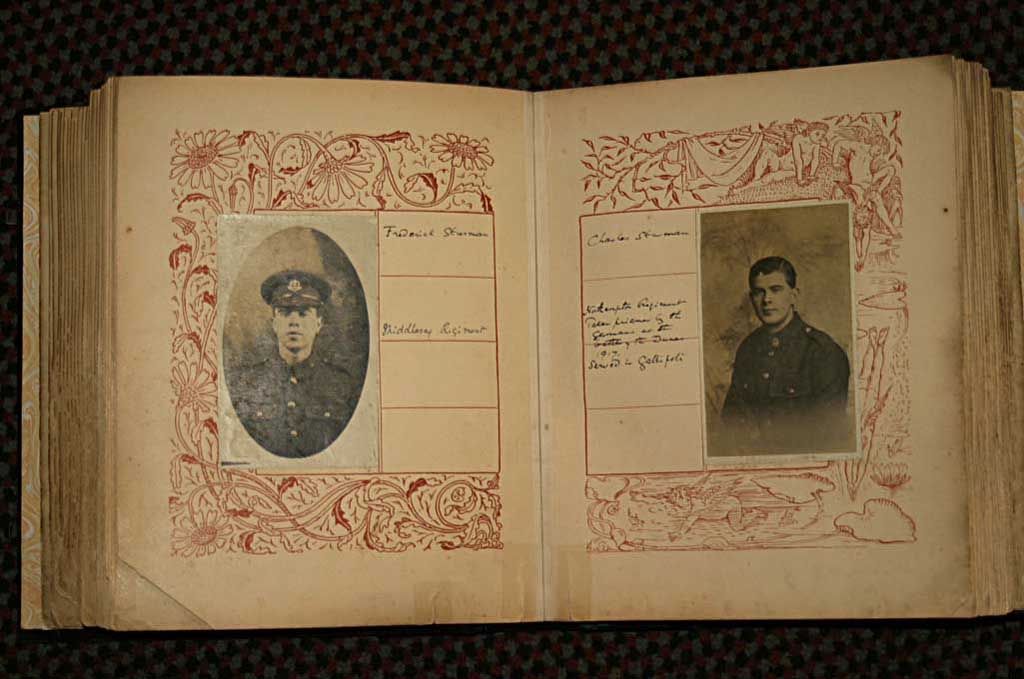 Frederick Sturman
Middlesex Regiment
Charles Sturman
Nthampton Regiment
Taken prisoner by the
Germans in the
battle of the Dunes
1917.
Served in Gallipoli